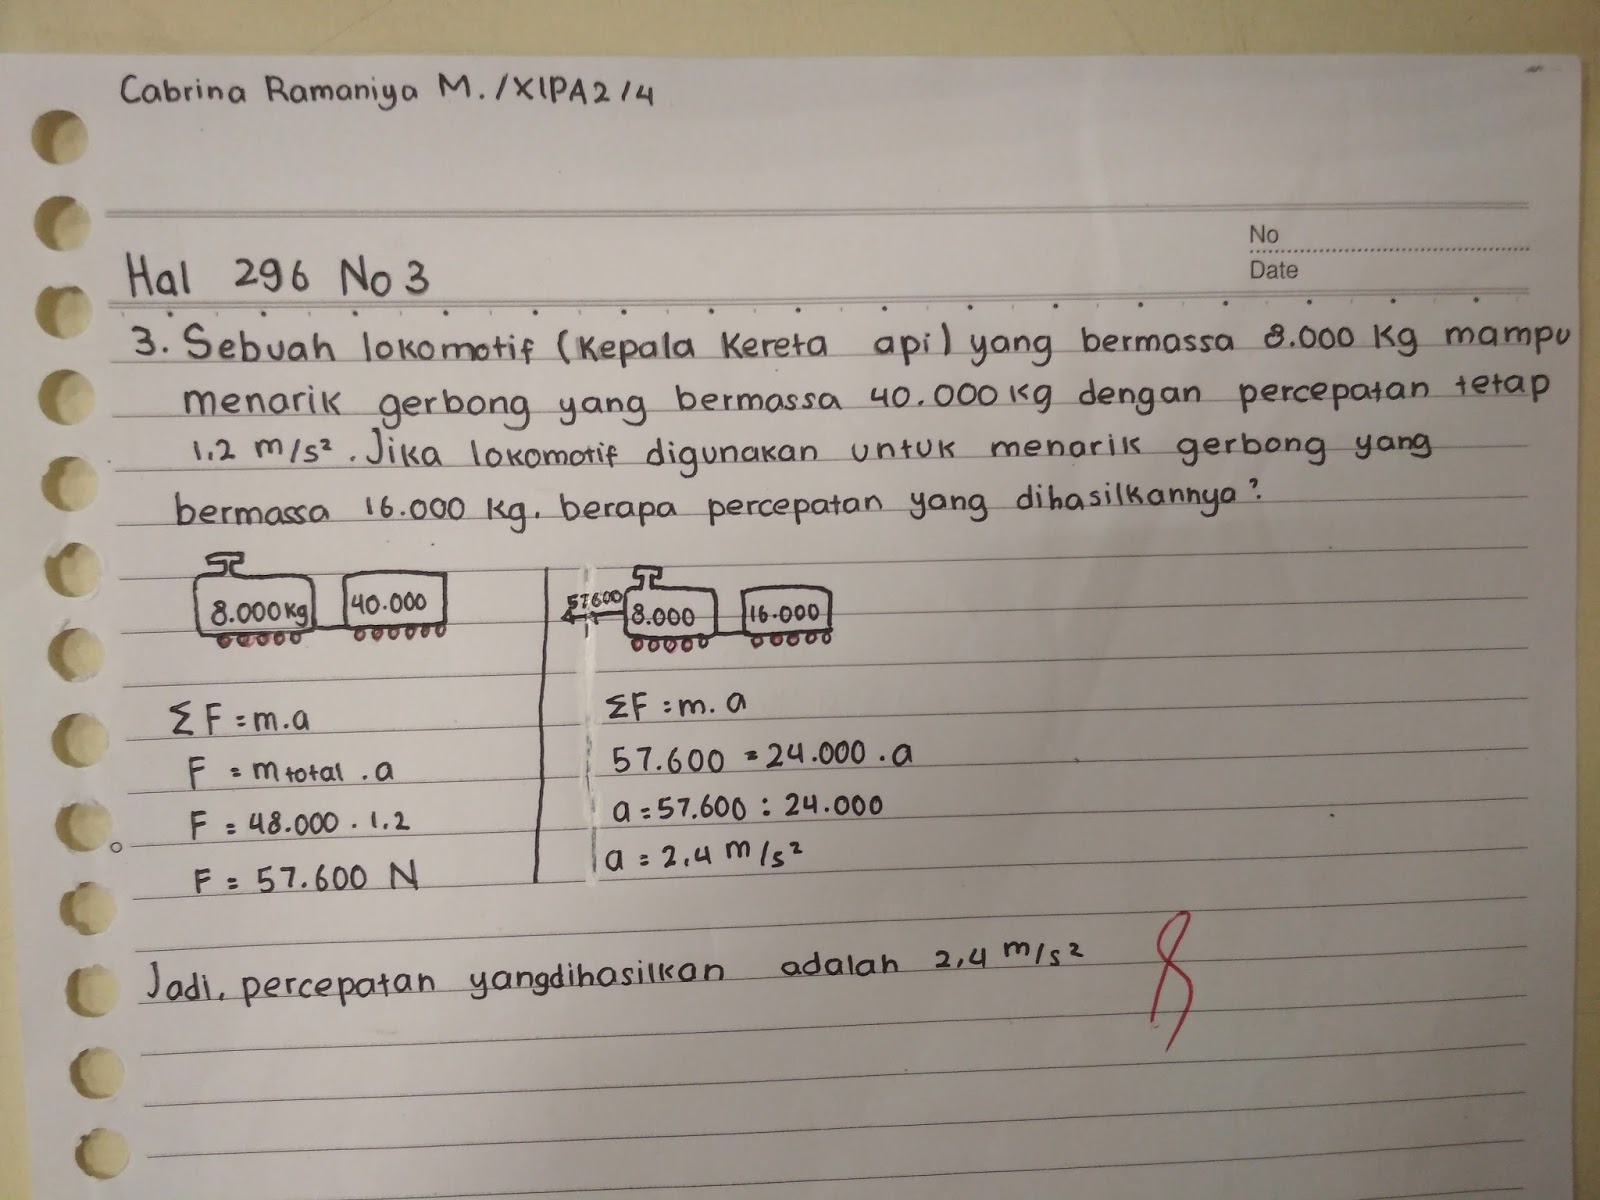 Cabrina Ramaniya M. / XIPA2 / 4
No
Date
Hal 296 No 3
3. Sebuah lokomotif (kepala kereta api) yang bermassa 8.000 kg mampu
menarik gerbong yang bermassa 40.000 kg dengan percepatan tetap
1.2 m/s². Jika lokomotif digunakan untuk menarik gerbong yang
bermassa 16.000 kg. berapa percepatan yang dihasilkannya?
8.000 kg
40.000
57.600
8.000
16.000
ΣF = m.a
F = m total . a
F = 48.000 . 1.2
F = 57.600 N
ΣF = m. a
57.600 = 24.000 . a
a = 57.600 : 24.000
a = 2.4 m/s²
Jadi, percepatan yangdihasilkan adalah 2,4 m/s²